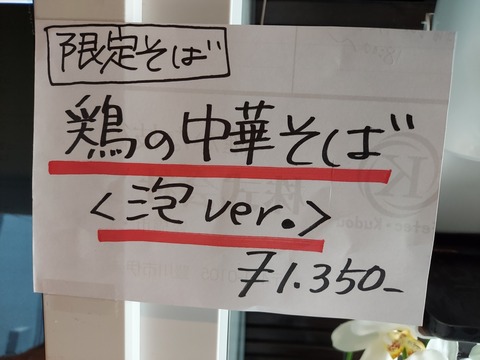 限定そば
鶏の中華そば
<泡 ver.>
¥1.350-